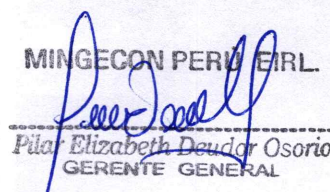 MINGECON PERÚ EIRL.
Pilar Elizabeth Deudor Osorio
GERENTE GENERAL